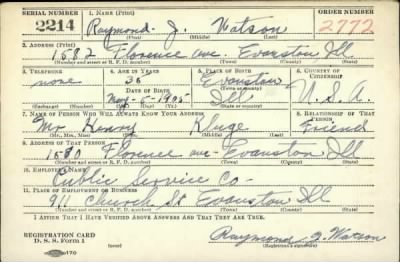 SERIAL NUMBER 1. NAME (Print) ORDER NUMBER
2214 Raymond J. Watson 2772
(First) (Middle) (Last)
2. ADDRESS (Print)
1582 Florence ave. Evanston Ill
(Number and street or R. F. D. number) (Town) (County) (State)
3. TELEPHONE 4. AGE IN YEARS 5. PLACE OF BIRTH 6. COUNTRY OF CITIZENSHIP
none Evanston
DATE OF BIRTH (Town or county)
1905 Ill U.S.A.
(Exchange) (Number) (Mo.) (Day) (Yr.) (State or country)
7. NAME OF PERSON WHO WILL ALWAYS KNOW YOUR ADDRESS 8. RELATIONSHIP OF THAT PERSON
Mr Henry Kluge Friend
(Mr., Mrs., Miss) (First) (Middle) (Last)
9. ADDRESS OF THAT PERSON
Florence ave - Evanston Ill
(Number and street or R. F. D. number) (Town) (County) (State)
10. EMPLOYER'S NAME
Public Service Co -
11. PLACE OF EMPLOYMENT OR BUSINESS
911 Church St Evanston Ill
(Number and street or R. F. D. number) (Town) (County) (State)
I AFFIRM THAT I HAVE VERIFIED ABOVE ANSWERS AND THAT THEY ARE TRUE.
REGISTRATION CARD
D. S. S. Form 1 (over) Raymond J. Watson
(Registrant's signature)